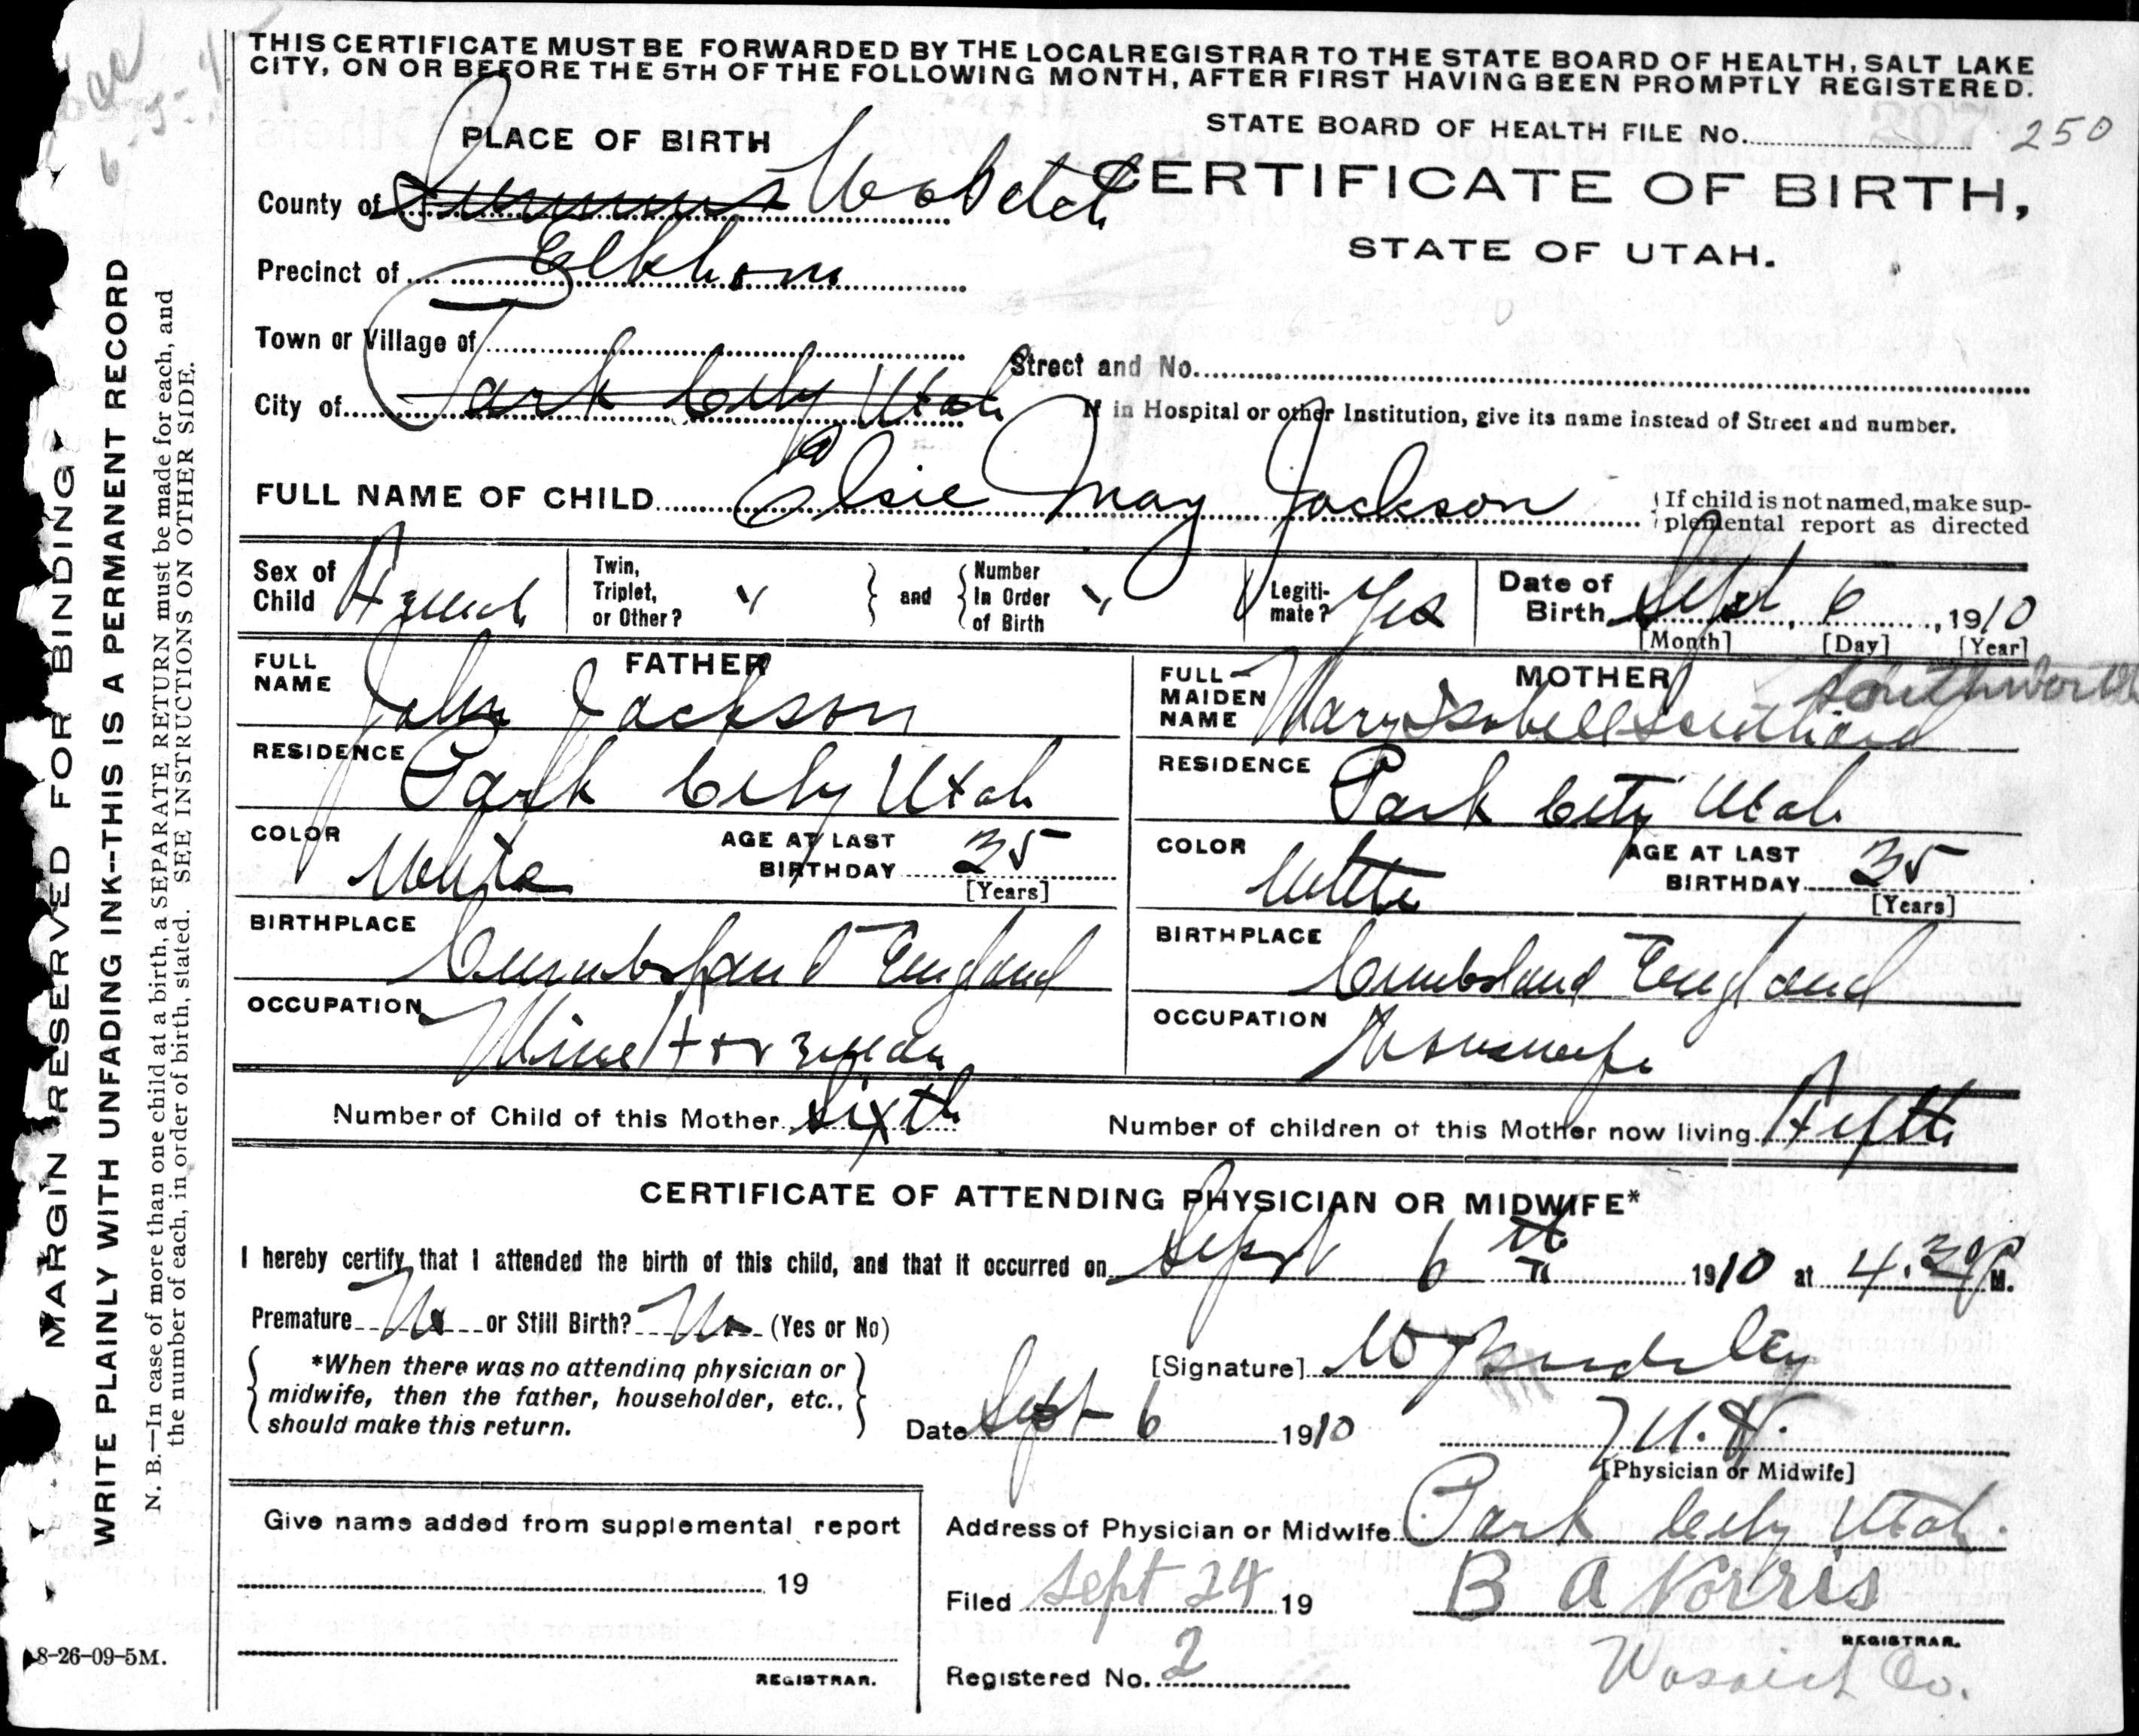 THIS CERTIFICATE MUST BE FORWARDED BY THE LOCAL REGISTRAR TO THE STATE BOARD OF HEALTH, SALT LAKE
CITY, ON OR BEFORE THE 5TH OF THE FOLLOWING MONTH, AFTER FIRST HAVING BEEN PROMPTLY REGISTERED.
STATE BOARD OF HEALTH FILE No. 250
PLACE OF BIRTH
CERTIFICATE OF BIRTH,
STATE OF UTAH.
County of Summit Wasatch
Precinct of Elkhorn
Town or Village of
Street and No.
City of Park City Utah
If in Hospital or other Institution, give its name instead of Street and number.
FULL NAME OF CHILD Elsie May Jackson
If child is not named, make sup-
plemental report as directed
Sex of Child Female
Twin, Triplet, or Other? "
and
Number In Order of Birth "
Legiti-mate? Yes
Date of Birth Sept 6, 1910
[Month] [Day] [Year]
FATHER
FULL NAME John Jackson
RESIDENCE Park City Utah
COLOR White
AGE AT LAST BIRTHDAY 35
[Years]
BIRTHPLACE Cumberland England
OCCUPATION Mine Foreman
MOTHER
Southworth
FULL MAIDEN NAME Mary Isabell
RESIDENCE Park City Utah
COLOR White
AGE AT LAST BIRTHDAY 35
[Years]
BIRTHPLACE Cumbsland England
OCCUPATION Housewife
Number of Child of this Mother Sixth
Number of children of this Mother now living Fifth
CERTIFICATE OF ATTENDING PHYSICIAN OR MIDWIFE*
I hereby certify that I attended the birth of this child, and that it occurred on Sept 6th 1910 at 4.30 P M.
Premature No or Still Birth? No (Yes or No)
*When there was no attending physician or
midwife, then the father, householder, etc.,
should make this return.
[Signature]
Date Sept 6 1910
[Physician or Midwife]
Give name added from supplemental report
19
REGISTRAR.
Address of Physician or Midwife Park City Utah.
Filed Sept 24 19
B A Norris
REGISTRAR.
Registered No. 2
Wasatch Co.
MARGIN RESERVED FOR BINDING
WRITE PLAINLY WITH UNFADING INK--THIS IS A PERMANENT RECORD
N. B.—In case of more than one child at a birth, a SEPARATE RETURN must be made for each, and
the number of each, in order of birth, stated. SEE INSTRUCTIONS ON OTHER SIDE.
8-26-09-5M.